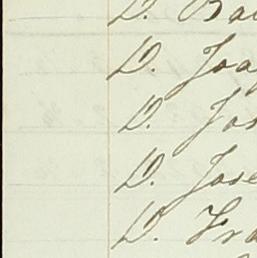 D. Ba
D. Joa
D. Jos
D. Jose
D. Fra